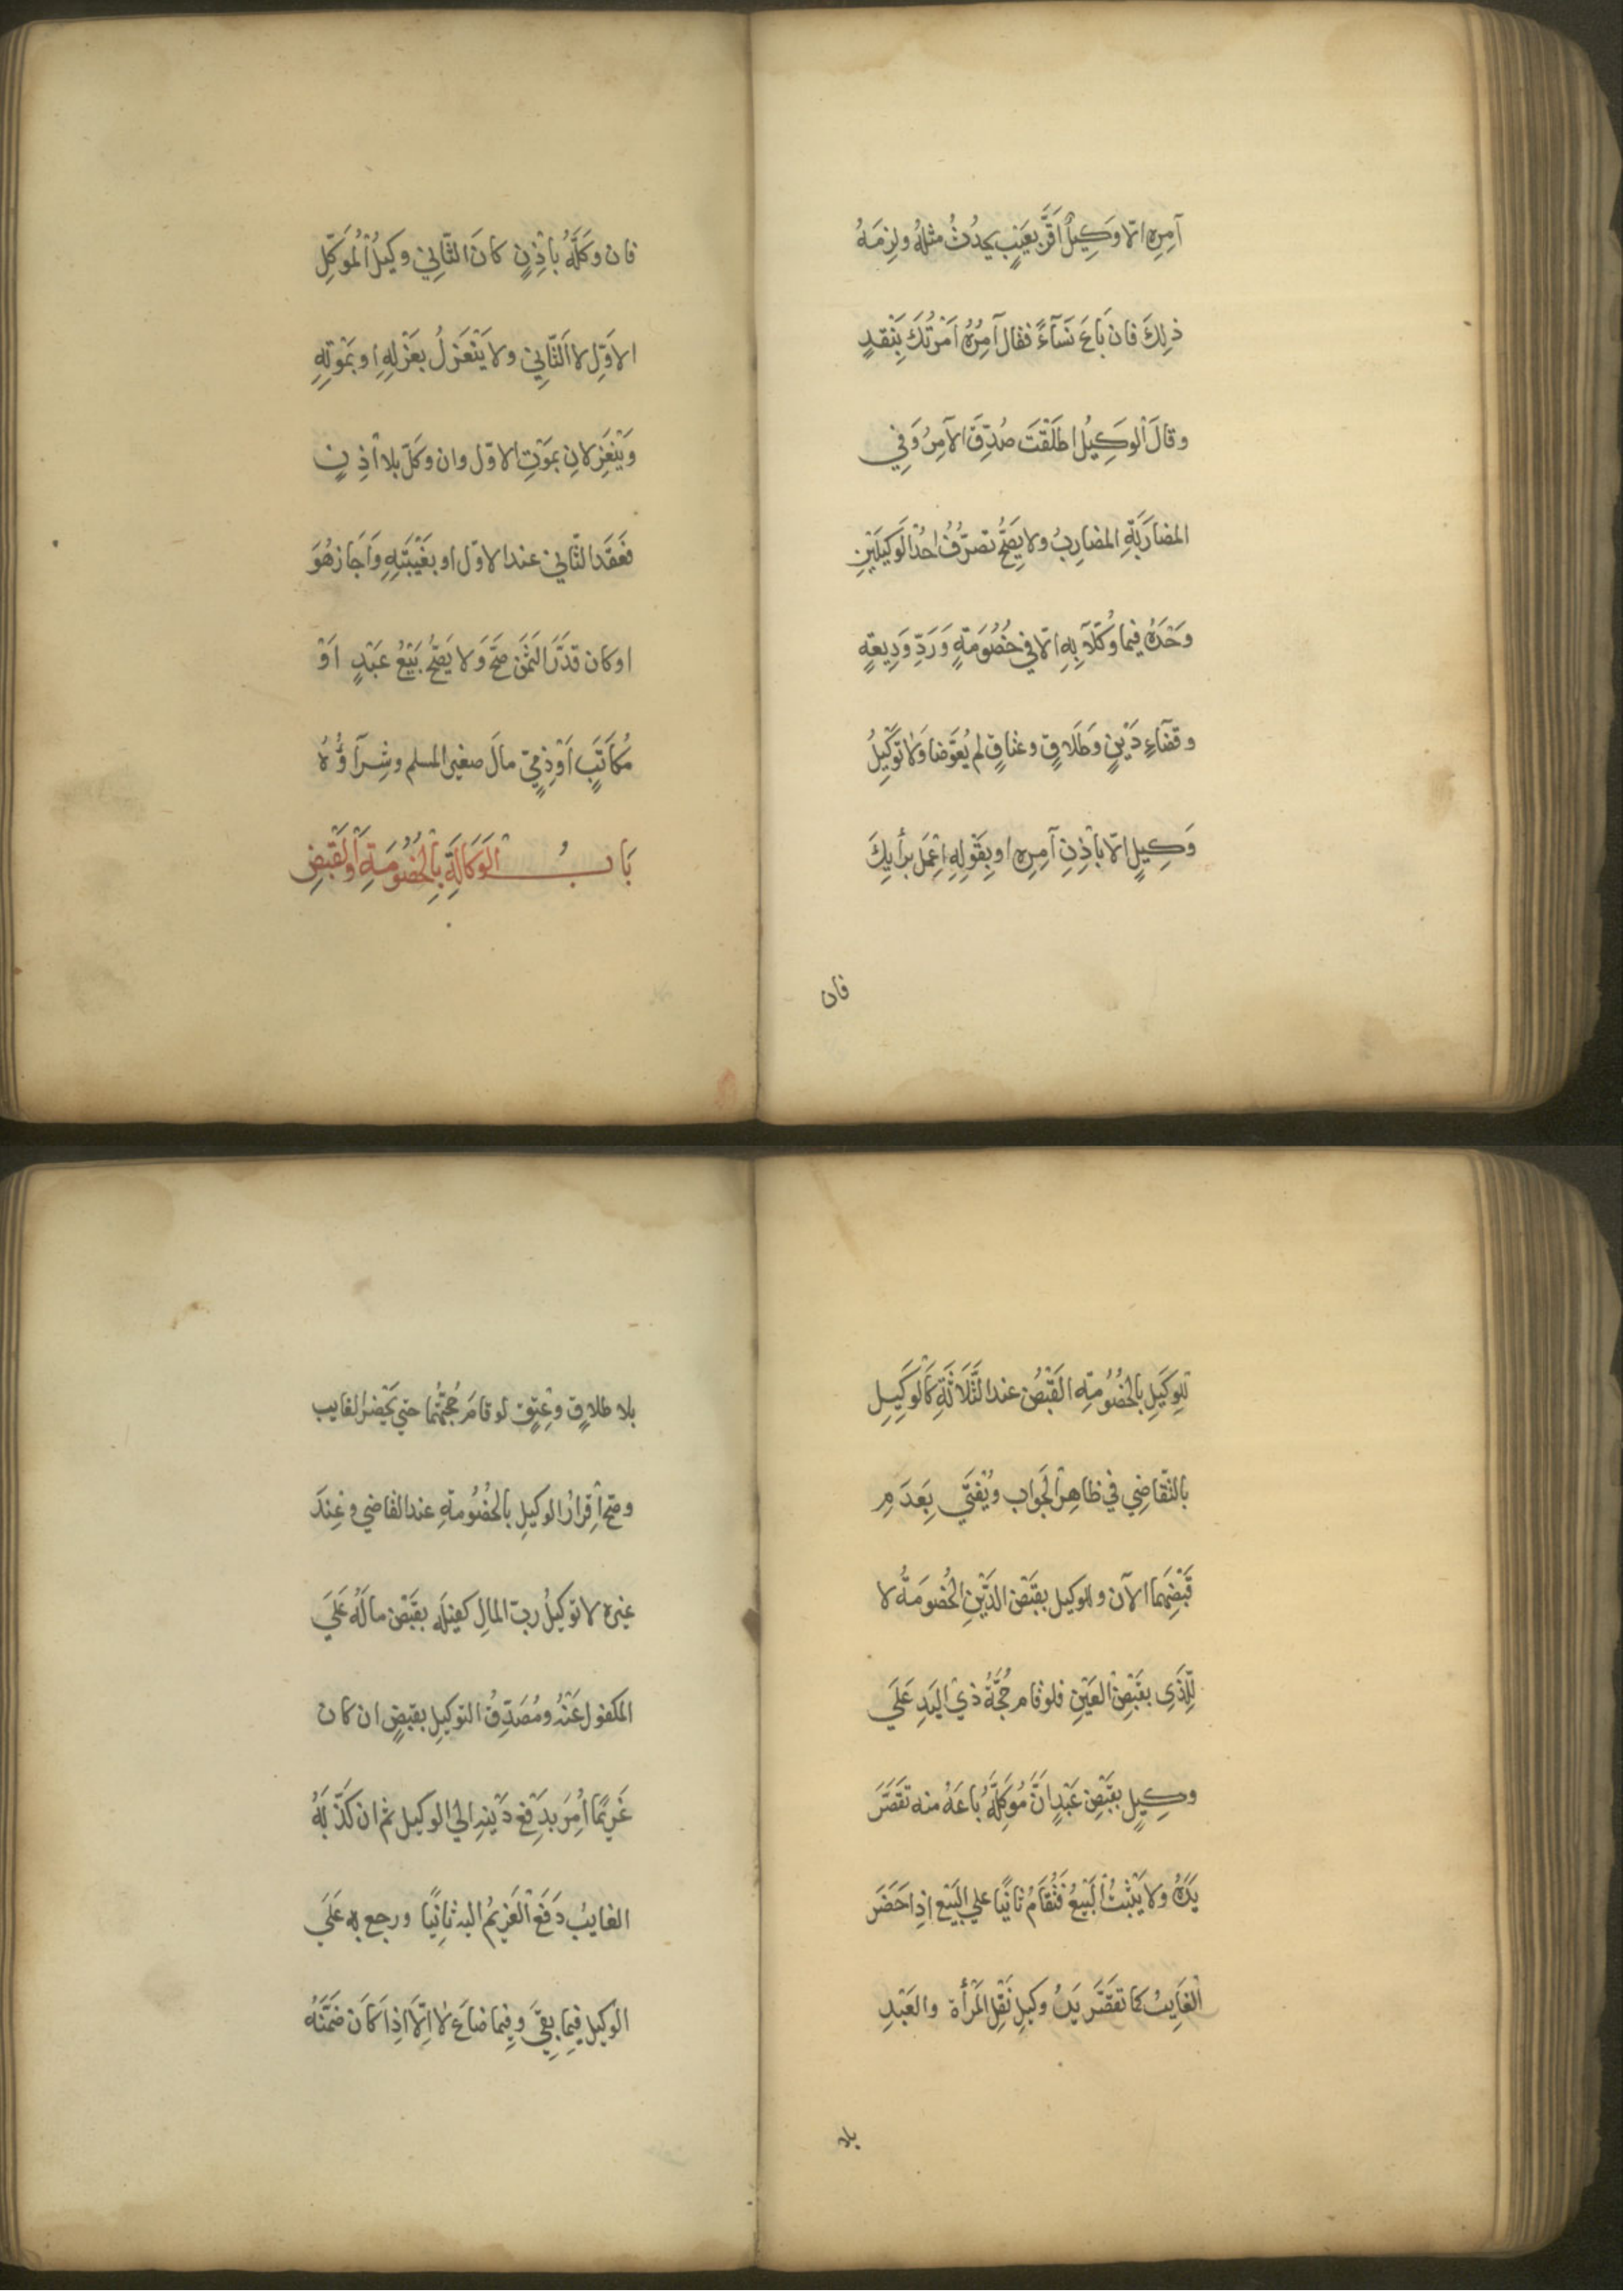 آمِرِه اِلّا وَكِيلٌ اَقَرَّ بِعَيْبٍ يحدُثُ مثلُهُ ولزِمَهُ
ذلِكَ فان بَاعَ نَسَآءً فقال آمِرُهُ اَمَرْتُكَ بِنَقدٍ
وقالَ الْوَكِيلُ اطلَقْتَ صُدِّقَ الآمِرُ وَفِي
المضارَبَةِ المضارِبُ ولا يَصِحُّ تصرُّفُ اَحَدِ الْوَكِيلَيْنِ
وَحْدَهُ فيما وُكِّلَا بِهِ اِلّا فِي خُصُومَةٍ وَرَدِّ وَدِيعَةٍ
وقضآءِ دَيْنٍ وَطَلَاقٍ وعتاقٍ لم يُعَوَّضا وَلَا تَوْكِيلُ
وَكِيلٍ اِلّا بِاْذِنِ آمِرِه او بِقَوْلِهِ اِعْمَلْ برأيِكَ
فان
فان وَكَّلَهُ بِاْذِنٍ كانَ الثَّانِي وكِيلُ الْمُوَكِّلِ
الاوّلِ لا الثّانِي ولا يَنْعَزِلُ بِعَزْلِهِ او بمَوتِهِ
وَيَنْعَزِلانِ بمَوْتِ الاوّل وان وَكَّلَ بلا اْذِنٍ
فعَقَدَ الثّانِي عند الاوّل او بِغَيْبَتِهِ وَاَجَازَ هُوَ
اوكان قدَّرَ الثَّمَنَ صَحَّ وَلا يَصِحُّ بَيْعُ عَبْدٍ اَوْ
مُكاَتَبٍ اَوْ ذِمِّيّ مالَ صغيره المسلم وشِرَآؤُهُ
بَابُ الْوَكَالَةِ بِالْخُصُومَةِ وَالْقَبْضِ
لِلْوَكِيلِ بِالْخُصُومَةِ القَبْضُ عند الثَّلَاثَةِ كَالْوَكِيلِ
بالتّقَاضِي فِي ظَاهِرِ الْجَوَاب ويُفْتَي بِعَدَمِ
قَبْضِهِما الآن وللوكيل بقبْضِ الدَّيْنِ الْخُصُومَةُ لا
لِلَّذِي بقَبْضِ الْعَيْنِ فلو قام حُجَّةُ ذِي الْيَدِ عَلَي
وكِيلٍ بقَبْضِ عَبْدٍ اَنَّ مُوَكِّلَهُ بَاعَهُ منه تقصَرُ
يَدُهُ ولا يَثْبُتُ الْبَيْعُ فَتُقَامُ ثانيًا علي الْبَيْعِ اِذا حَضَرَ
الْغَايِبُ كما تقصَرُ يَدُ وكيلِ نَقْلِ الْمَرْأة والعَبْدِ
بلا
بلا طلاقٍ وعِتقٍ لو قامَ حُجَّتُهُما حتي يَحْضُرَ الغايب
وصح اِقرارُ الوكيلِ بالْخُصُومَةِ عند القاضي لا عِندَ
غيره لا توكيلُ ربّ المالِ كفيلَه بقبْضِ مالَهُ عَلَي
المكفول عَنْهُ ومُصَدِّقُ التوكيلِ بقبضٍ ان كان
غَرِيمًا اُمِرَ بدَفْعِ دَيْنِه الي الوكيل ثم ان كَذَّبَهُ
الغايبُ دَفَعَ الْغَرِيمُ اليه ثانِيًا ورجع به عَلَي
الْوكيل فِيما بقِيَ وفِيما ضاعَ لا اِلّا اِذا كَانَ ضَمَّنَهُ